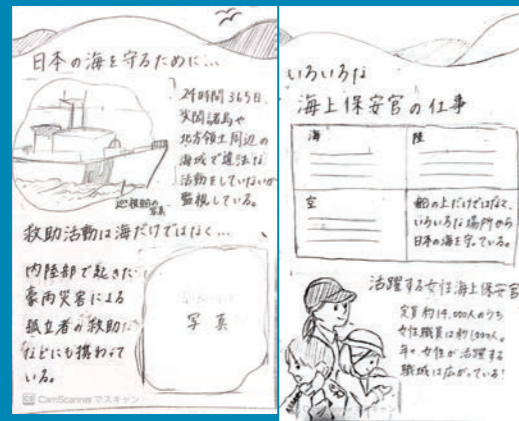 日本の海を守るために…
24時間365日、
尖閣諸島や
地方領土周辺の
海域で違法な
活動をしていないか
監視している。
巡視船の
写真
救助活動は海だけではなく…
内陸部で起きた
豪雨災害による
孤立者の救助な
などにも携わって
いる。
写真
CamScannerでスキャン
いろいろな
海上保安官の仕事
海
陸
空
船の上だけではなく、
いろいろな場所から
日本の海を守っている。
活躍する女性海上保安官
定員約14,000人のうち
女性職員は約1,000人。
年々、女性が活躍する
職域は広がっている!